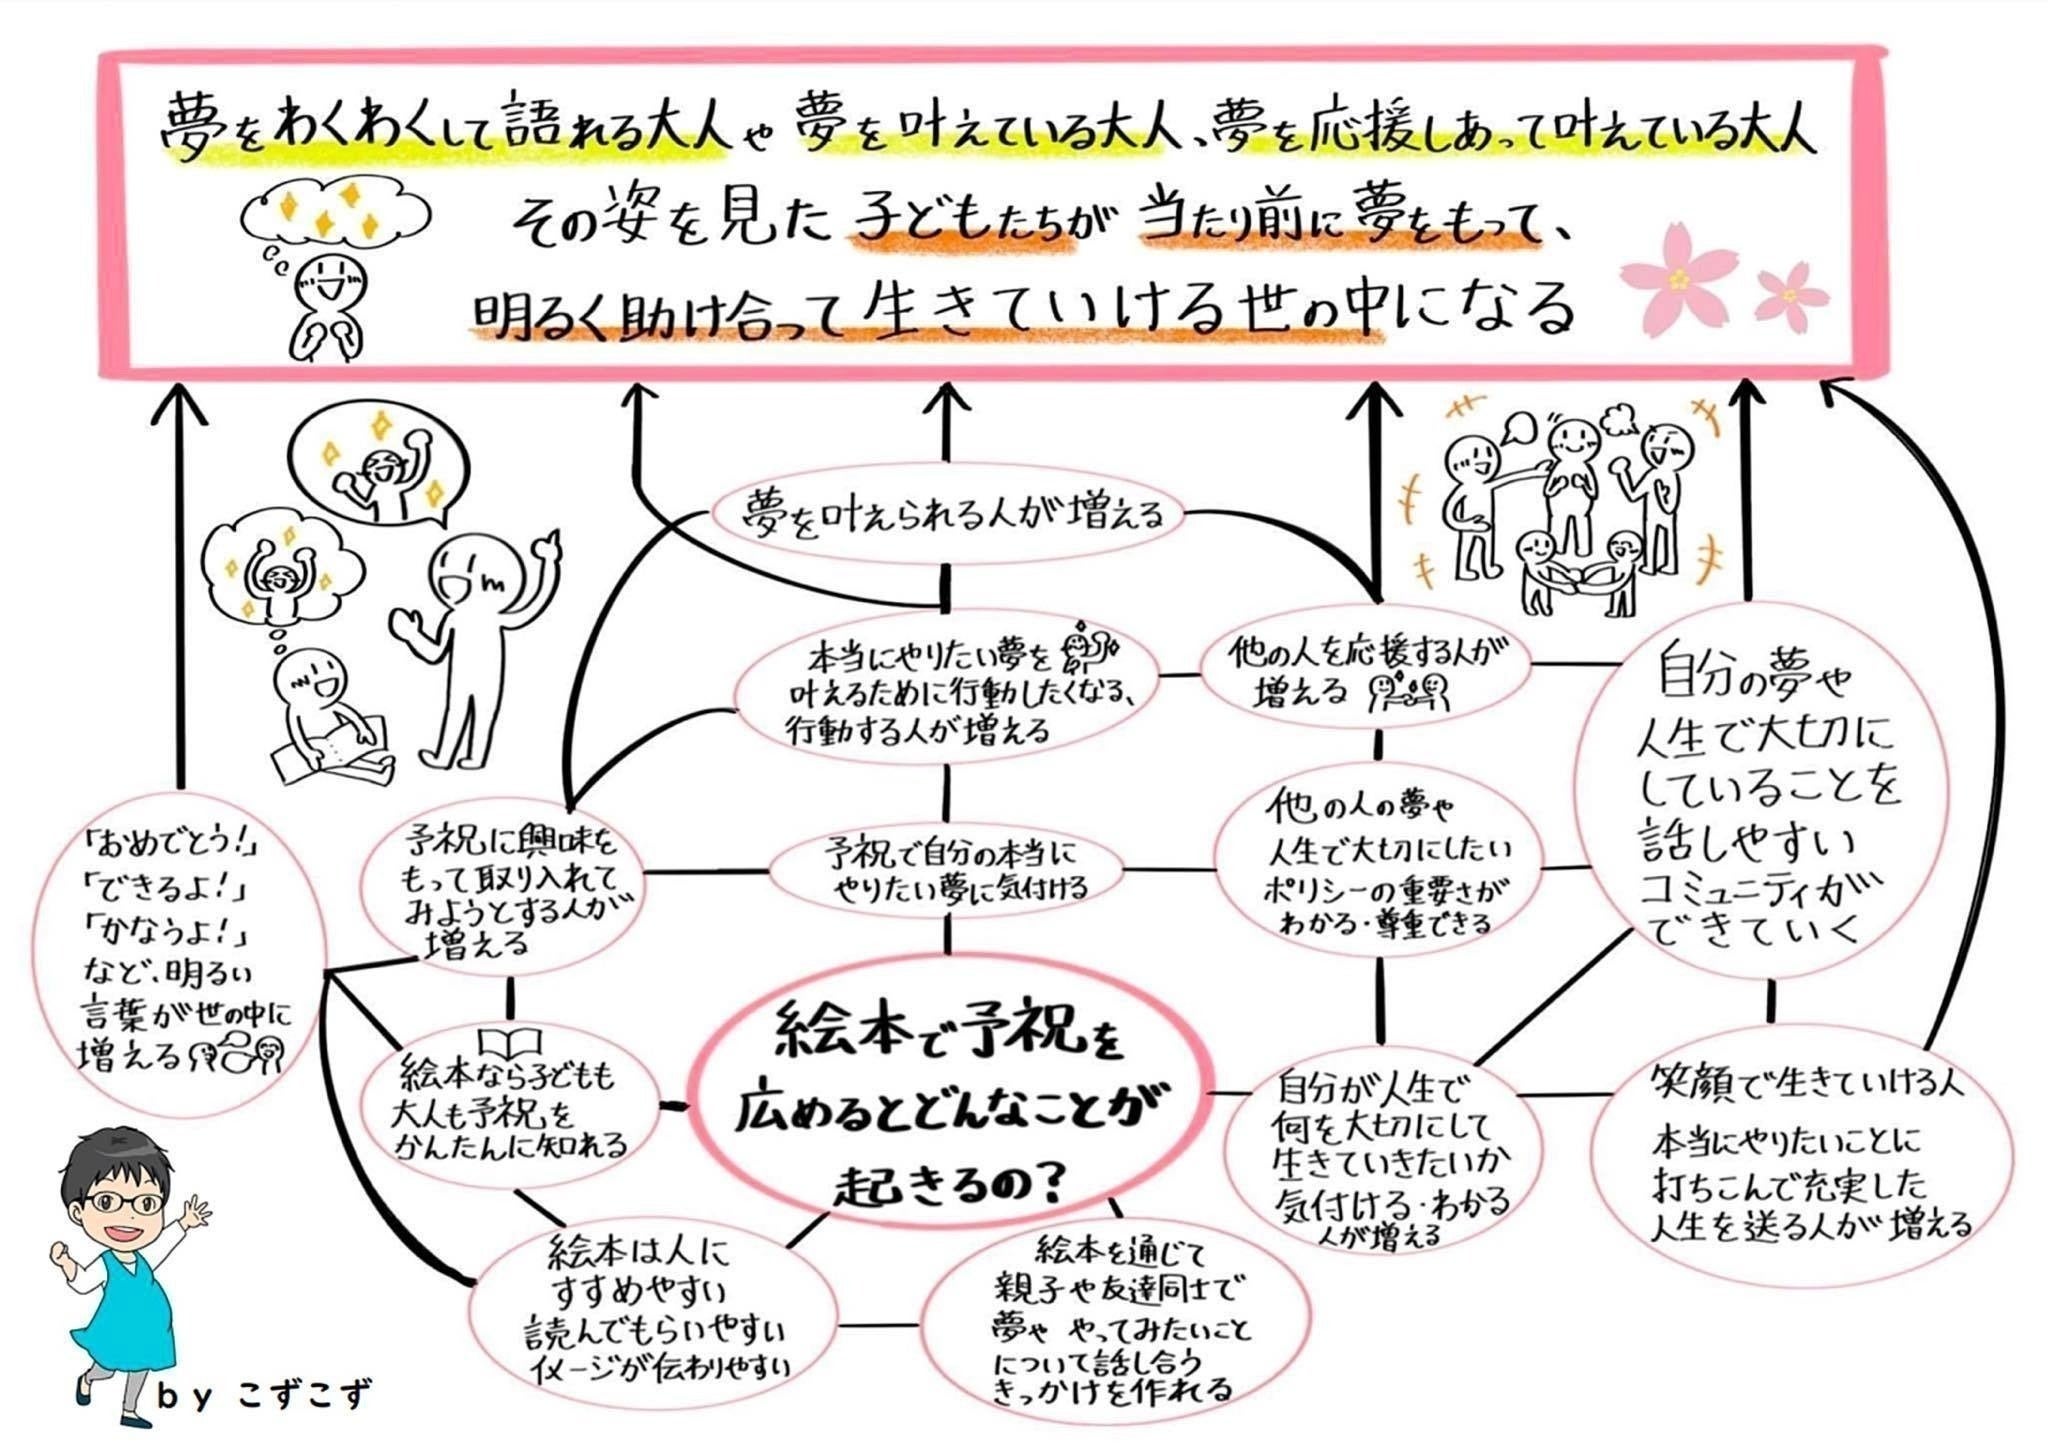 夢をわくわくして語れる大人や夢を叶えている大人、夢を応援しあって叶えている大人
その姿を見た子どもたちが当たり前に夢をもって、
明るく助け合って生きていける世の中になる
夢を叶えられる人が増える
本当にやりたい夢を
叶えるために行動したくなる、
行動する人が増える
他の人を応援する人が
増える
自分の夢や
人生で大切に
していることを
話しやすい
コミュニティが
できていく
「おめでとう!」
「できるよ!」
「かなうよ!」
など、明るい
言葉が世の中に
増える
予祝に興味を
もって取り入れて
みようとする人が
増える
予祝で自分の本当に
やりたい夢に気付ける
他の人の夢や
人生で大切にしたい
ポリシーの重要さが
わかる・尊重できる
絵本なら子どもも
大人も予祝を
かんたんに知れる
絵本で予祝を
広めるとどんなことが
起きるの?
自分が人生で
何を大切にして
生きていきたいか
気付ける・わかる
人が増える
笑顔で生きていける人
本当にやりたいことに
打ちこんで充実した
人生を送る人が増える
絵本は人に
すすめやすい
読んでもらいやすい
イメージが伝わりやすい
絵本を通じて
親子や友達同士で
夢や やってみたいこと
について話し合う
きっかけを作れる
by こずこず